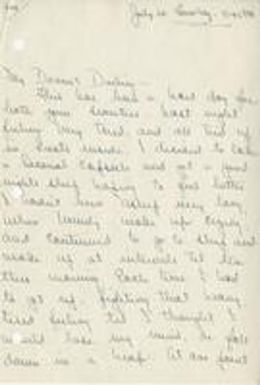 July 20 Sunday
My Dearest Darling —
This has been a hard day for
your last night
feeling very tired, and all tied up
in knots inside. I decided to take
a Seconal capsule and get a good
nights sleep hoping to feel better
I hadn't been asleep very long
when woke up
and continued to go to sleep and
wake up at intervals til
this morning. Each time I had
to get up fighting that heavy
tired feeling til I thought I
would lose my mind or fall
down in a heap. At one point